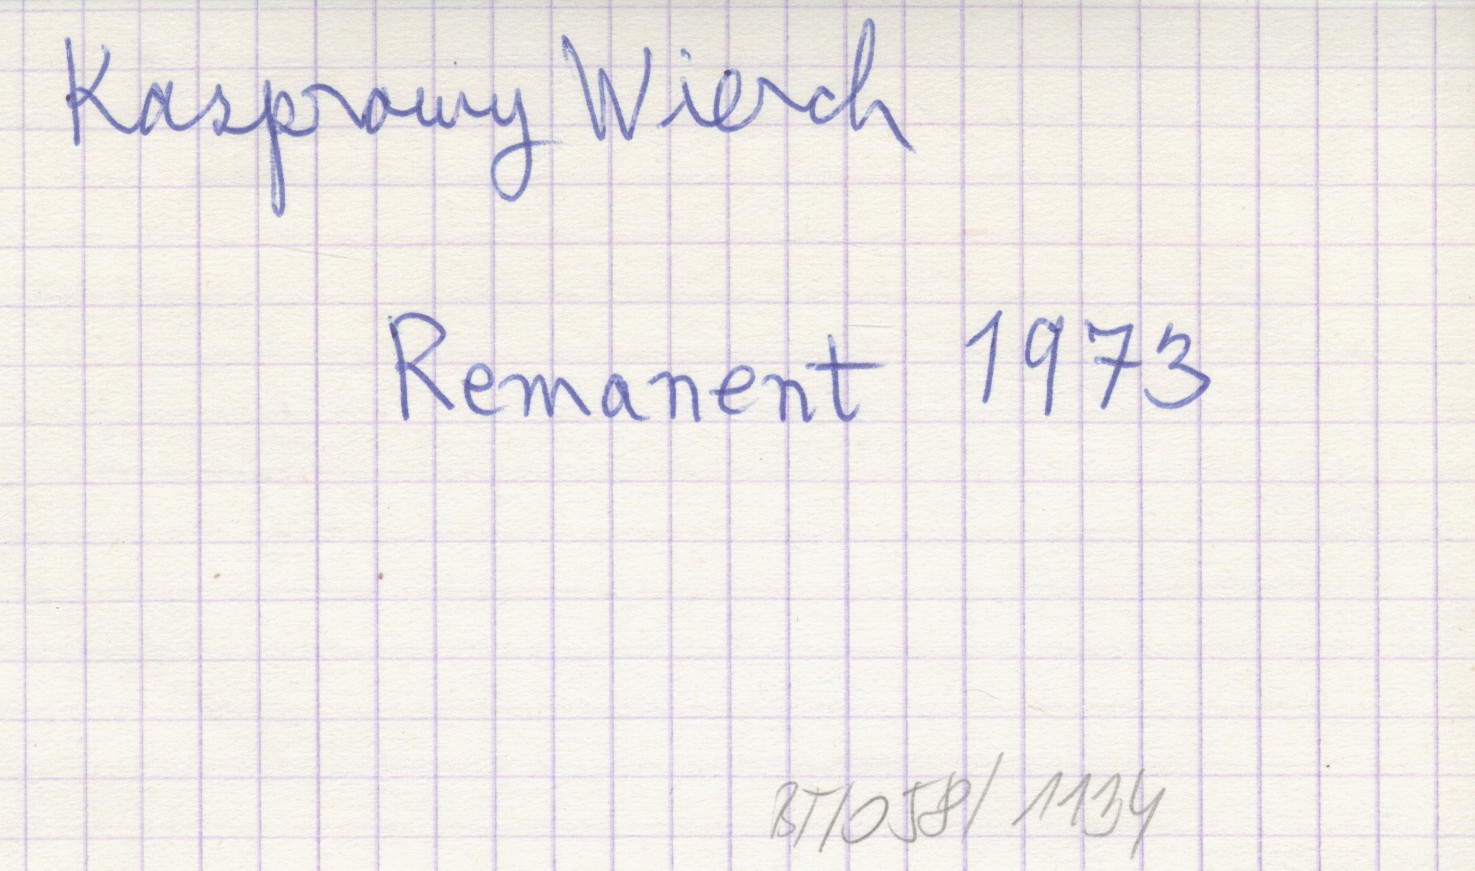 Kasprowy Wierch
Remanent 1973
BT/058/1134